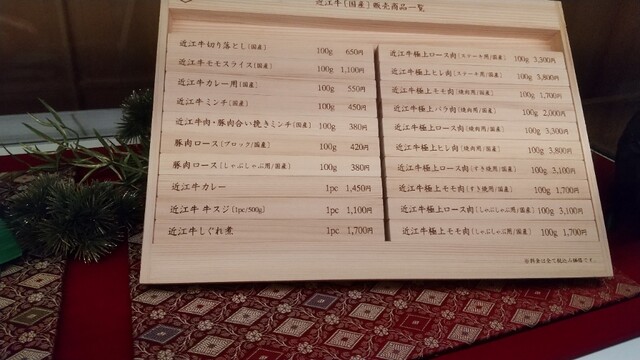 近江牛〔国産〕販売商品一覧
近江牛切り落とし〔国産〕 100g 650円
近江牛モモスライス〔国産〕 100g 1,100円
近江牛カレー用〔国産〕 100g 550円
近江牛ミンチ〔国産〕 100g 450円
近江牛肉・豚肉合い挽きミンチ〔国産〕 100g 380円
豚肉ロース〔ブロック/国産〕 100g 420円
豚肉ロース〔しゃぶしゃぶ用/国産〕 100g 380円
近江牛カレー 1pc 1,450円
近江牛 牛スジ〔1pc/500g〕 1pc 1,100円
近江牛しぐれ煮 1pc 1,700円
近江牛極上ロース肉〔ステーキ用/国産〕 100g 3,300円
近江牛極上ヒレ肉〔ステーキ用/国産〕 100g 3,800円
近江牛極上モモ肉〔焼肉用/国産〕 100g 1,700円
近江牛極上バラ肉〔焼肉用/国産〕 100g 2,000円
近江牛極上ロース肉〔焼肉用/国産〕 100g 3,300円
近江牛極上ヒレ肉〔焼肉用/国産〕 100g 3,800円
近江牛極上ロース肉〔すき焼用/国産〕 100g 3,100円
近江牛極上モモ肉〔すき焼用/国産〕 100g 1,700円
近江牛極上ロース肉〔しゃぶしゃぶ用/国産〕 100g 3,100円
近江牛極上モモ肉〔しゃぶしゃぶ用/国産〕 100g 1,700円
※料金は全て税込み価格です。